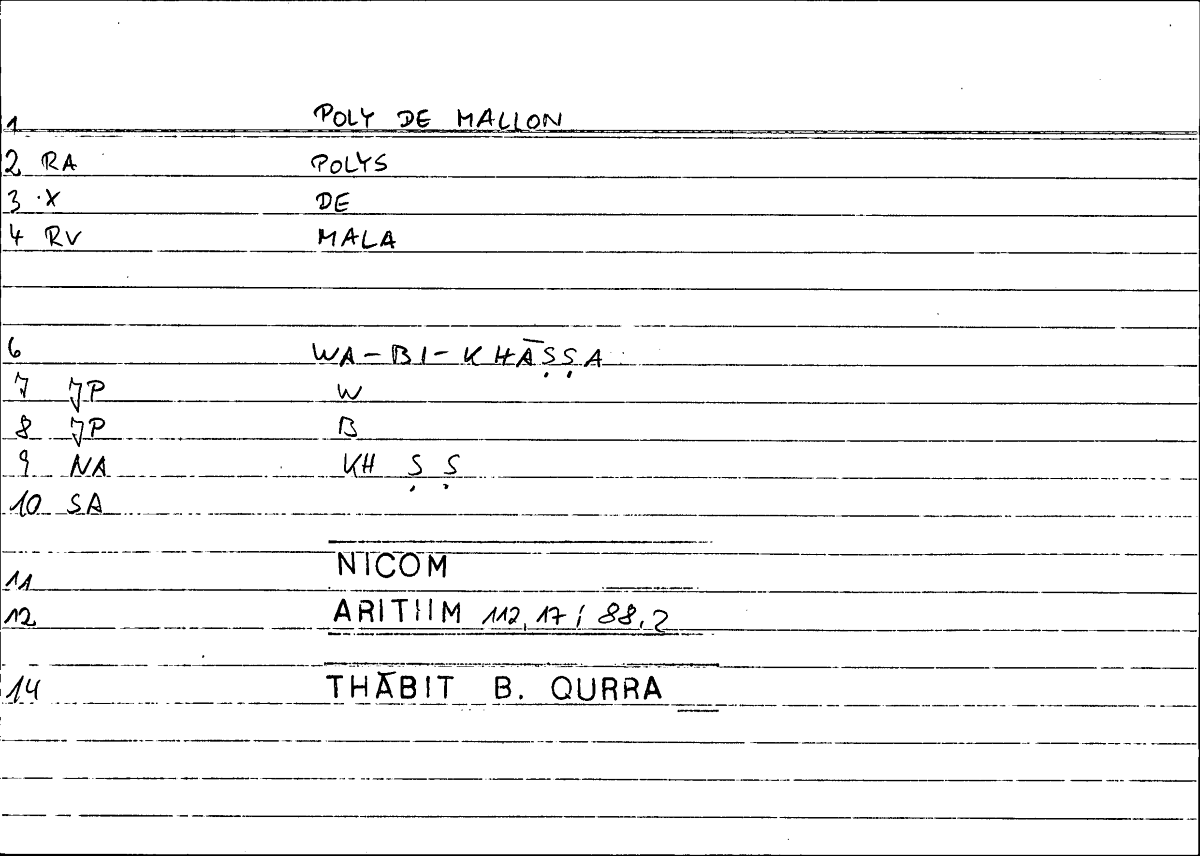 1 POLY DE MALLON
2 RA POLYS
3 ·X DE
4 RV MALA
6 WA-BI-KHĀṢṢA
7 JP W
8 JP B
9 NA KH Ṣ Ṣ
10 SA
11 NICOM
12 ARITIIM 112,17; 88,2
14 THĀBIT B. QURRA